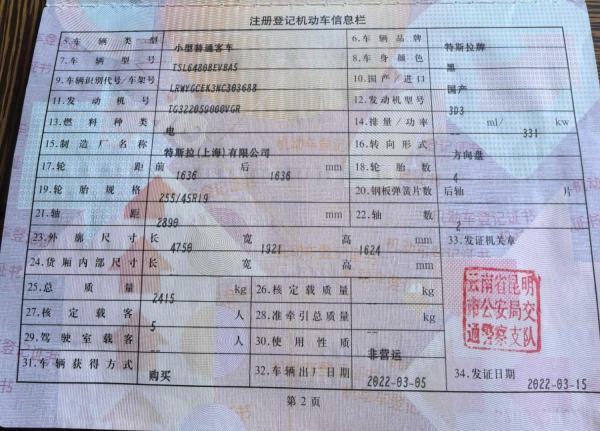 注册登记机动车信息栏
5.车辆类型 小型普通客车 6.车辆品牌 特斯拉牌
7.车辆型号 TSL6480BEVBA5 8.车身颜色 黑
9.车辆识别代号/车架号 LRWYGCEK3NC303688 10.国产/进口 国产
11.发动机号 TG322059000VGR 12.发动机型号 3D3
13.燃料种类 电 14.排量/功率 -- ml/ 331 kw
15.制造厂名称 特斯拉(上海)有限公司 16.转向形式 方向盘
17.轮距 前 1636 后 1636 mm 18.轮胎数 4
19.轮胎规格 255/45R19 20.钢板弹簧片数 后轴 -- 片
21.轴距 2890 mm 22.轴数 2
23.外廓尺寸 长 4750 宽 1921 高 1624 mm 33.发证机关章
24.货厢内部尺寸 长 -- 宽 -- 高 -- mm
云南省昆明
市公安局交
通警察支队
25.总质量 2415 kg 26.核定载质量 -- kg
27.核定载客 5 人 28.准牵引总质量 -- kg
29.驾驶室载客 -- 人 30.使用性质 非营运
31.车辆获得方式 购买 32.车辆出厂日期 2022-03-05 34.发证日期 2022-03-15
第2页